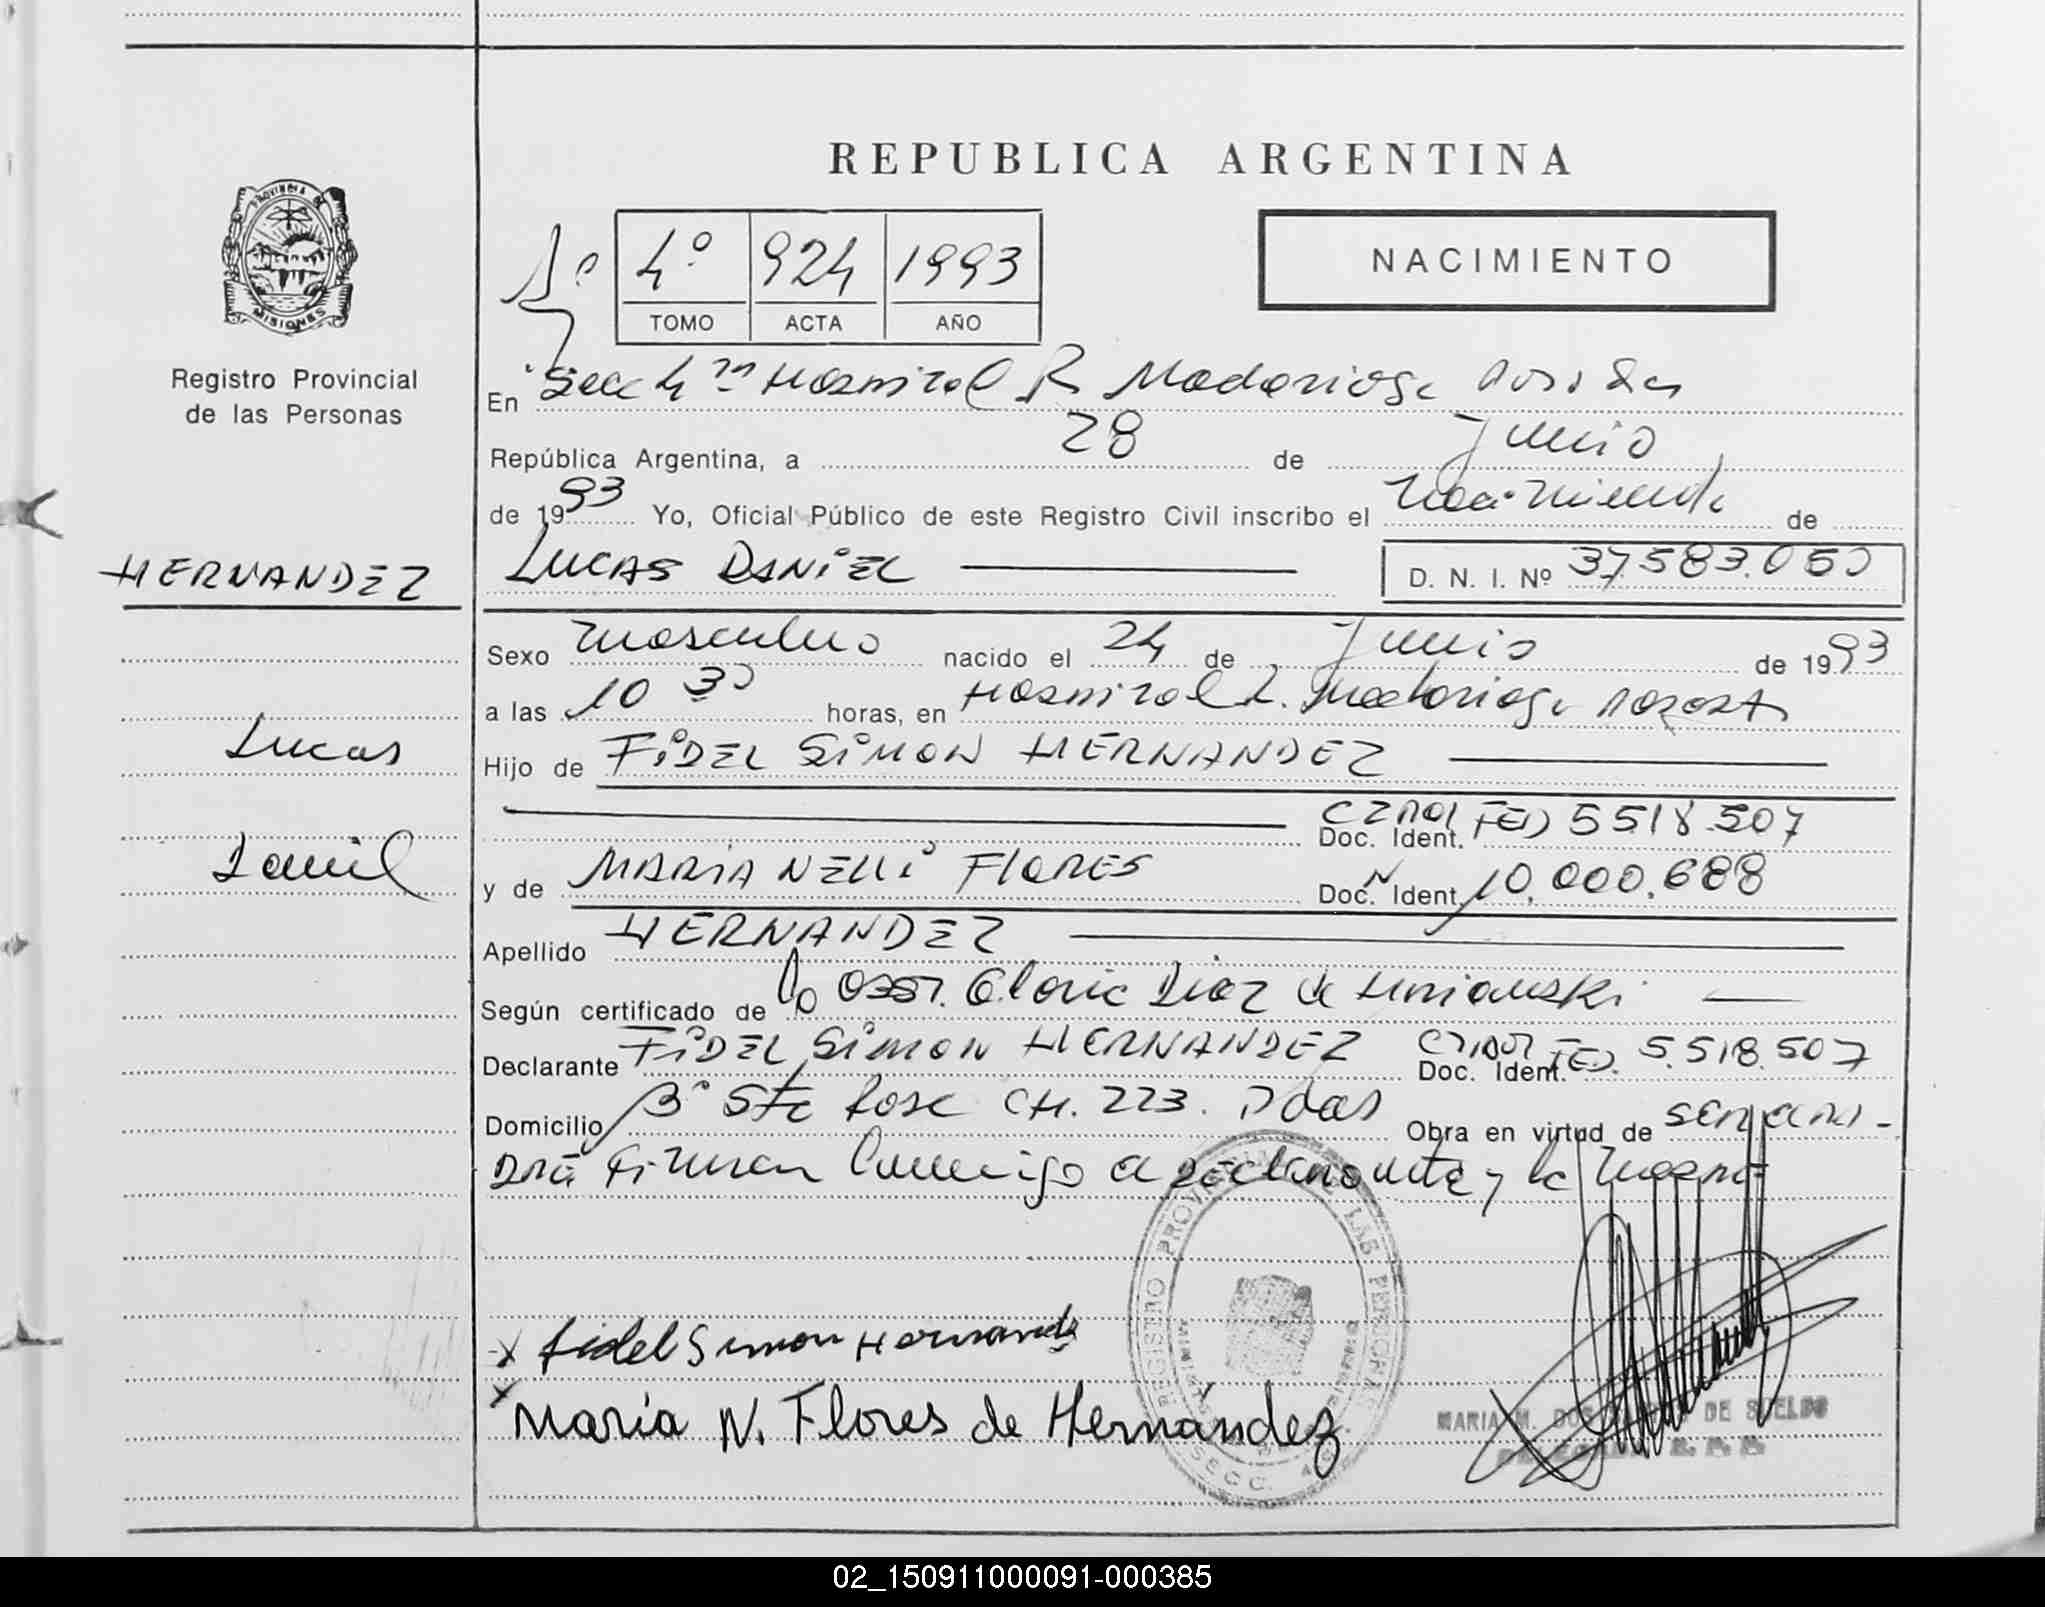 REPUBLICA ARGENTINA
PROVINCIA DE
MISIONES
Registro Provincial
de las Personas
1º
4º 924 1993
TOMO ACTA AÑO
NACIMIENTO
En Secc 4ta Hospital R Madariaga Posadas
República Argentina, a 28 de Junio
de 1993 Yo, Oficial Público de este Registro Civil inscribo el Nacimiento de
HERNANDEZ
LUCAS DANIEL D. N. I. Nº 37.583.050
Sexo Masculino nacido el 24 de Junio de 1993
a las 10 30 horas, en Hospital R. Madariaga
Lucas
Hijo de FIDEL SIMON HERNANDEZ
Doc. Ident. FED 5518.507
Daniel
y de MARIA NELLI FLORES Doc. Ident. 10.000.688
Apellido HERNANDEZ
Según certificado de la Obst. Gloria Diaz de
Declarante FIDEL SIMON HERNANDEZ Doc. Ident. FED. 5.518.507
Domicilio Bº Sta Rosa CH. 223. Pdas Obra en virtud de
Firman Conmigo el declarante y la
Fidel Simon Hernandez
Maria N. Flores de Hernández
REGISTRO PROVINCIAL DE LAS PERSONAS
MARIA M. DOS DE SUELDO
02_150911000091-000385